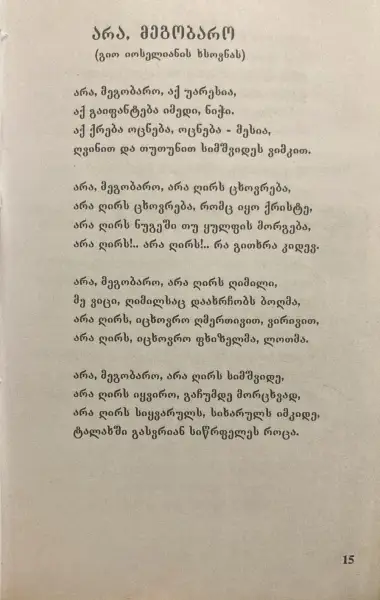 არა, მეგობარო
(გიო იოსელიანის ხსოვნას)
არა, მეგობარო, აქ უარესია,
აქ გაიფანტება იმედი, ნიჭი.
აქ ქრება ოცნება, ოცნება - მესია,
ღვინით და თუთუნით სიმშვიდეს ვიმკით.
არა, მეგობარო, არა ღირს ცხოვრება,
არა ღირს ცხოვრება, რომც იყო ქრისტე,
არა ღირს ნუგეში თუ ყულფის მორგება,
არა ღირს!.. არა ღირს!.. რა გითხრა კიდევ.
არა, მეგობარო, არა ღირს ღიმილი,
მე ვიცი, ღიმილსაც დაახრჩობს ბოღმა,
არა ღირს, იცხოვრო ღმერთივით, ვირივით,
არა ღირს, იცხოვრო ფხიზელმა, ლოთმა.
არა, მეგობარო, არა ღირს სიმშვიდე,
არა ღირს იყვირო, გაჩუმდე მორცხვად,
არა ღირს სიყვარულს, სიხარულს იმკიდე,
ტალახში გასვრიან სიწრფელეს როცა.
15